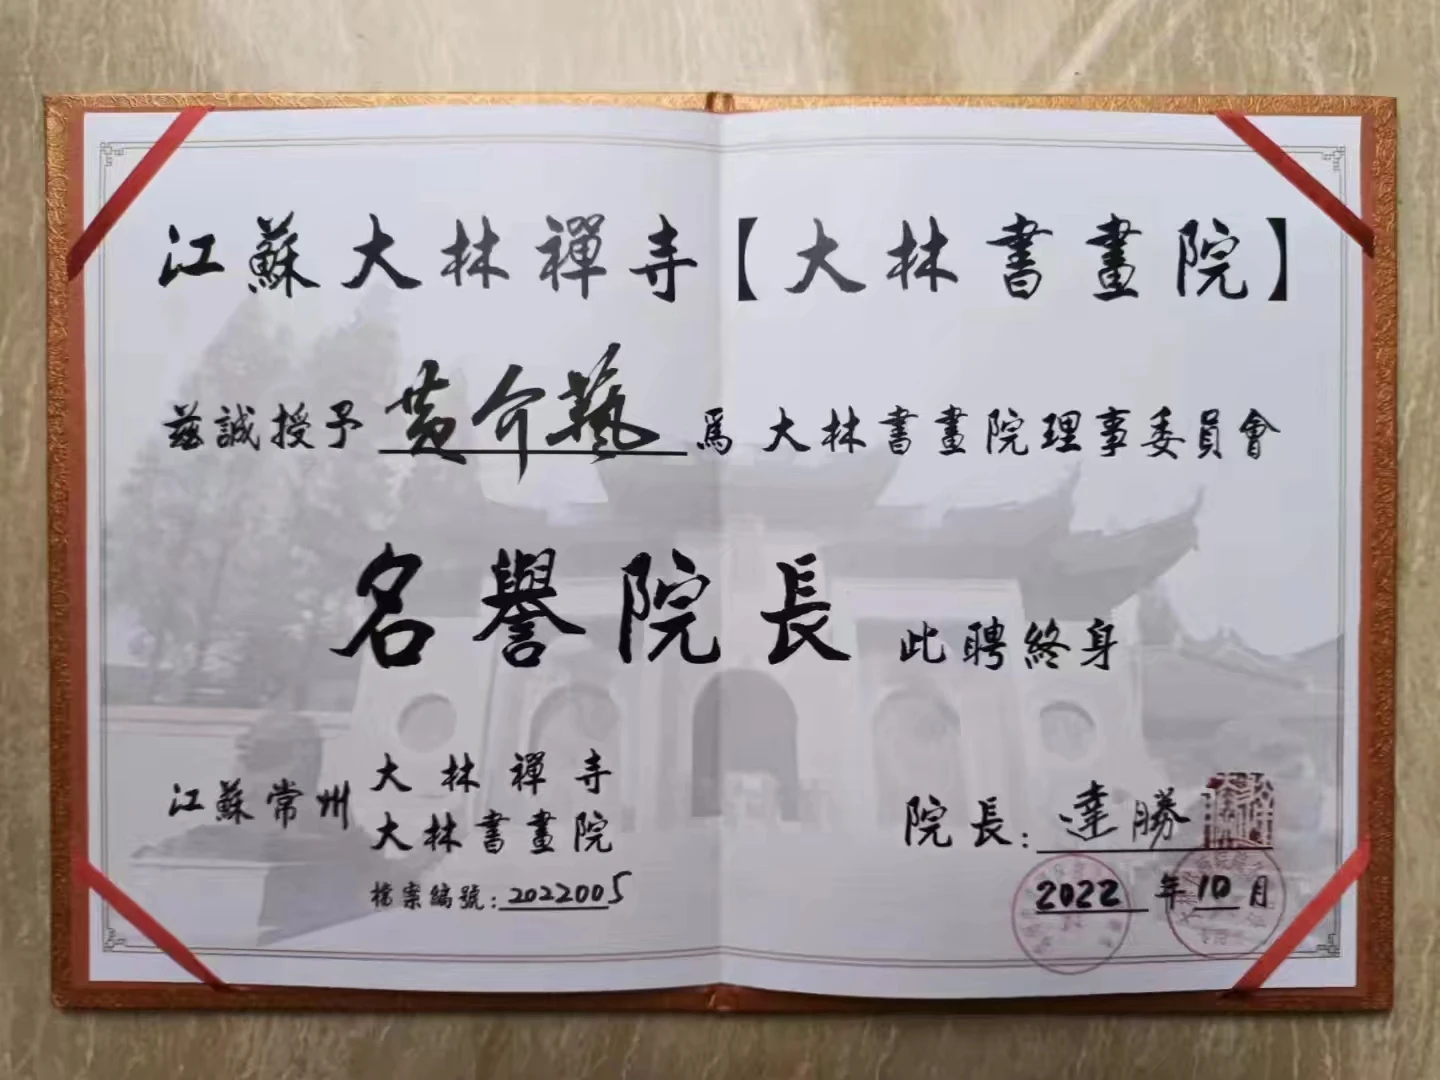 江蘇大林禪寺【大林書畫院】
茲誠授予 黄介藝 爲大林書畫院理事委員會
名譽院長 此聘終身
江蘇常州
大林禪寺
大林書畫院
檔案編號：2022005
院長：達勝
2022年10月